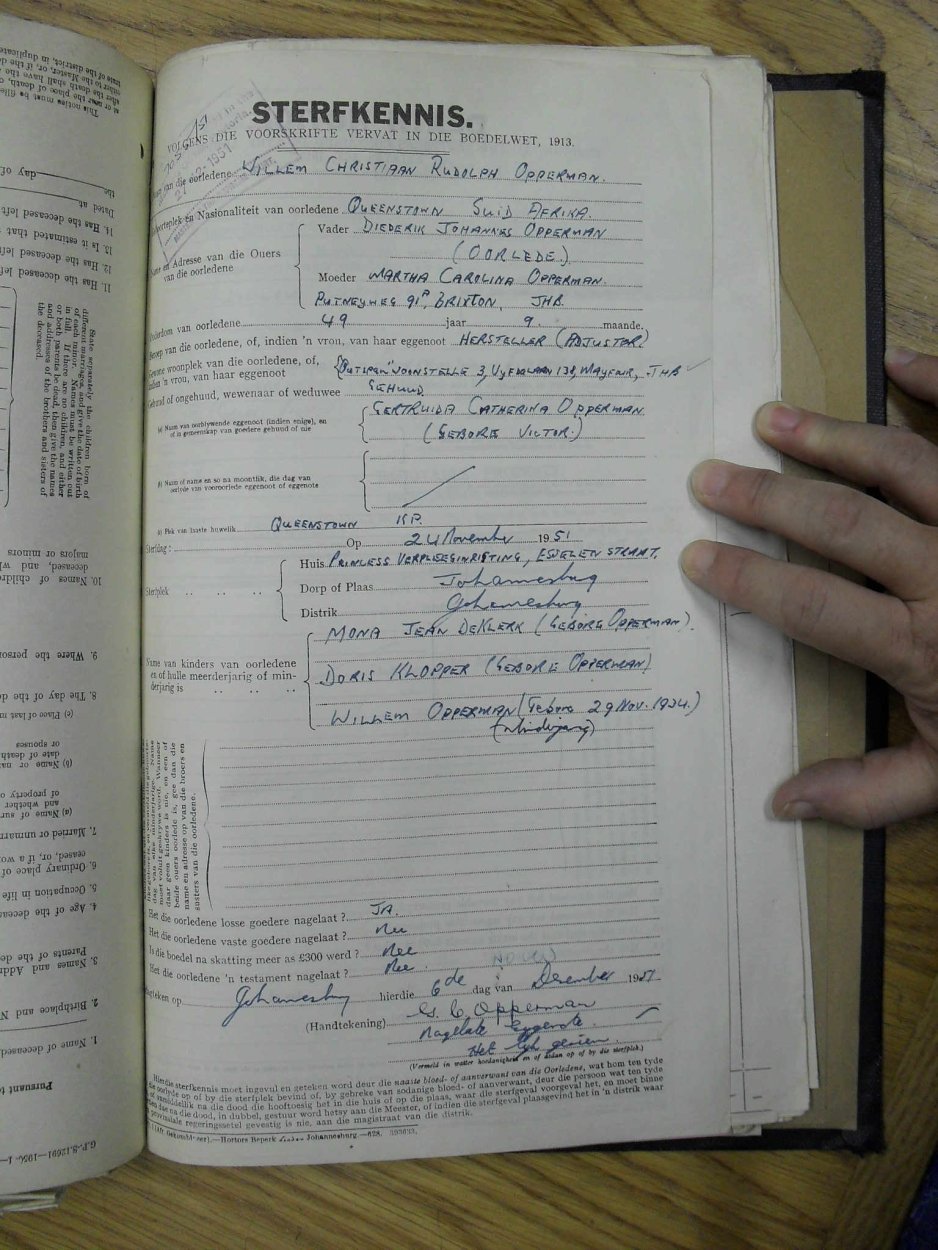 STERFKENNIS.
VOLGENS DIE VOORSKRIFTE VERVAT IN DIE BOEDELWET, 1913.
van die oorledene WILLEM CHRISTIAAN RUDOLPH OPPERMAN.
en Nasionaliteit van oorledene QUEENSTOWN SUID AFRIKA.
Vader DIEDERIK JOHANNES OPPERMAN
(OORLEDE.)
en Adresse van die Ouers
van die oorledene
Moeder MARTHA CAROLINA OPPERMAN.
PUTNEYWEG 91A, BRIXTON, JHB.
van oorledene 49 jaar 9. maande.
van die oorledene, of, indien 'n vrou, van haar eggenoot HERSTELLER (ADJUSTOR)
woonplek van die oorledene, of,
indien 'n vrou, van haar eggenoot
WOONSTELLE 3, 138, MAYFAIR, JHB
of ongehuud, wewenaar of weduwee GEHUUD.
(a) Naam van oorblywende eggenoot (indien enige), en
of in gemeenskap van goedere gehuud of nie
GERTRUIDA CATHERINA OPPERMAN
(GEBORE VICTOR.)
(b) Naam of name en so na moontlik, die dag van
oorlyde van vooroorlede eggenoot of eggenote
(c) Plek van laaste huwelik QUEENSTOWN K.P.
Sterfdag: Op 24 November 1951
Sterfplek
Huis PRINCESS VERPLEEGINRIGTING, ESSELEN STRAAT.
Dorp of Plaas Johannesburg
Distrik Johannesburg
MONA JEAN DEKLERK (GEBORE OPPERMAN).
Name van kinders van oorledene
en of hulle meerderjarig of min-
derjarig is
DORIS KLOPPER (GEBORE OPPERMAN)
WILLEM OPPERMAN (Gebore 29 Nov. 1934.)
(minderjarig)
dag van elke minderjarige. Name
moet voluit geskrywe word. Wanneer
daar geen kinders is nie, en een of
beide ouers oorlede is, gee dan die
name en adresse op van die broers en
susters van die oorledene.
Het die oorledene losse goedere nagelaat? JA.
Het die oorledene vaste goedere nagelaat? Nee
Is die boedel na skatting meer as £300 werd? Nee
Het die oorledene 'n testament nagelaat? Nee.
op Johannesburg hierdie 6de dag van Desember 1951
(Handtekening) G. C. Opperman
Nagelate Eggenote.
Het lyk gesien.
(Vermeld in watter hoedanigheid en of aldan op of by die sterfplek.)
Hierdie sterfkennis moet ingevul en geteken word deur die naaste bloed- of aanverwant van die Oorledene, wat hom ten tyde
die oorlyde op of by die sterfplek bevind of, by gebreke van sodanige bloed- of aanverwant, deur die persoon wat ten tyde
of onmiddellik na die dood die hooftoesig het in die huis of op die plaas, waar die sterfgeval voorgeval het, en moet binne
dae na die dood, in dubbel, gestuur word hetsy aan die Meester, of indien die sterfgeval plaasgevind het in 'n distrik waar
provinsiale regeringssetel gevestig is nie, aan die magistraat van die distrik.
Hortors Beperk Johannesburg—628. 393633.
This notice must be
the day of
Dated at
14. Has the deceased left
13. Is it estimated that
12. Has the deceased left
11. Has the deceased left
State separately the children born of
different marriages, and give the date of birth
of each minor. Names must be written out
in full. If there are no children, and either
or both parents be dead, then give the names
and addresses of the brothers and sisters of
the deceased.
majors or minors
deceased, and
10. Names of
9. Where the person
8. The day of the
(c) Place of last
or spouses
date of death
(b) Name or
of property
and whether
(a) Name of
7. Married or
ceased, or, if a
6. Ordinary place of
5. Occupation in life
4. Age of the
Parents of the
3. Names and
2. Birthplace and
1. Name of deceased
Pursuant